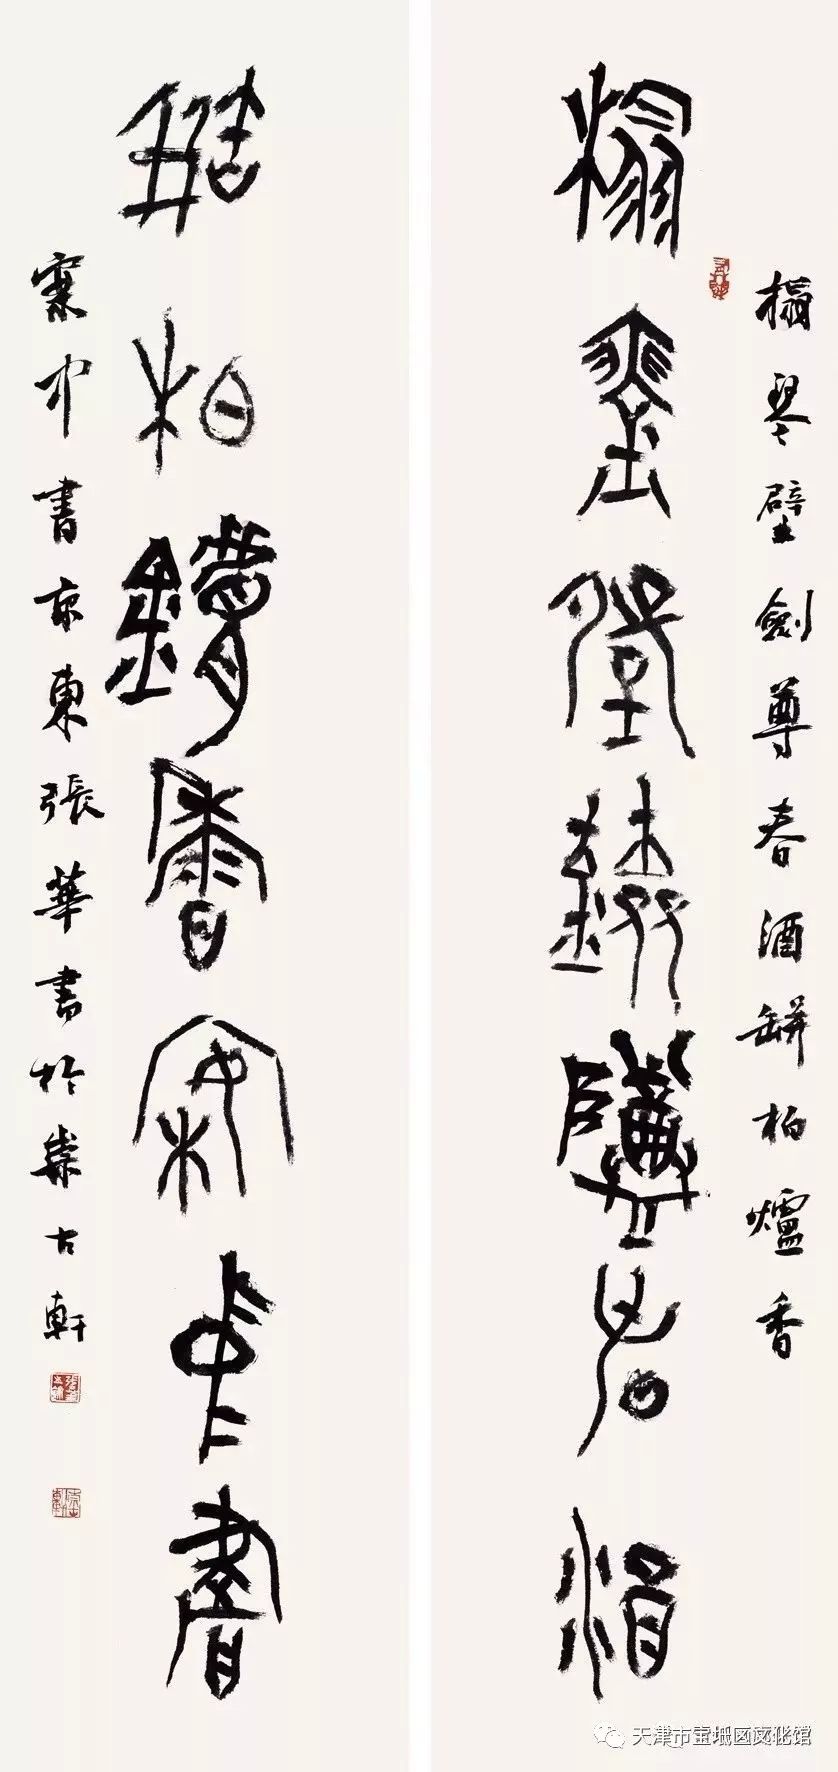 榻琴壁劍尊春酒缾柏爐香
榻琴壁劍尊春酒
缾柏鑪香案中書
案中書京東張華書於古軒
天津市宝坻区文化馆